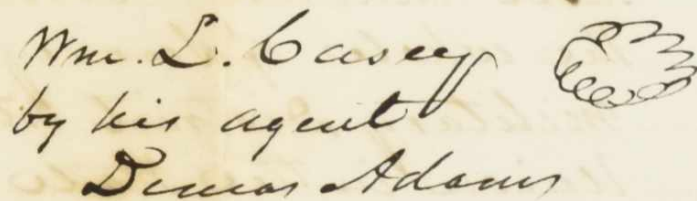 Wm. L. Casey
by his agent
Demas Adams